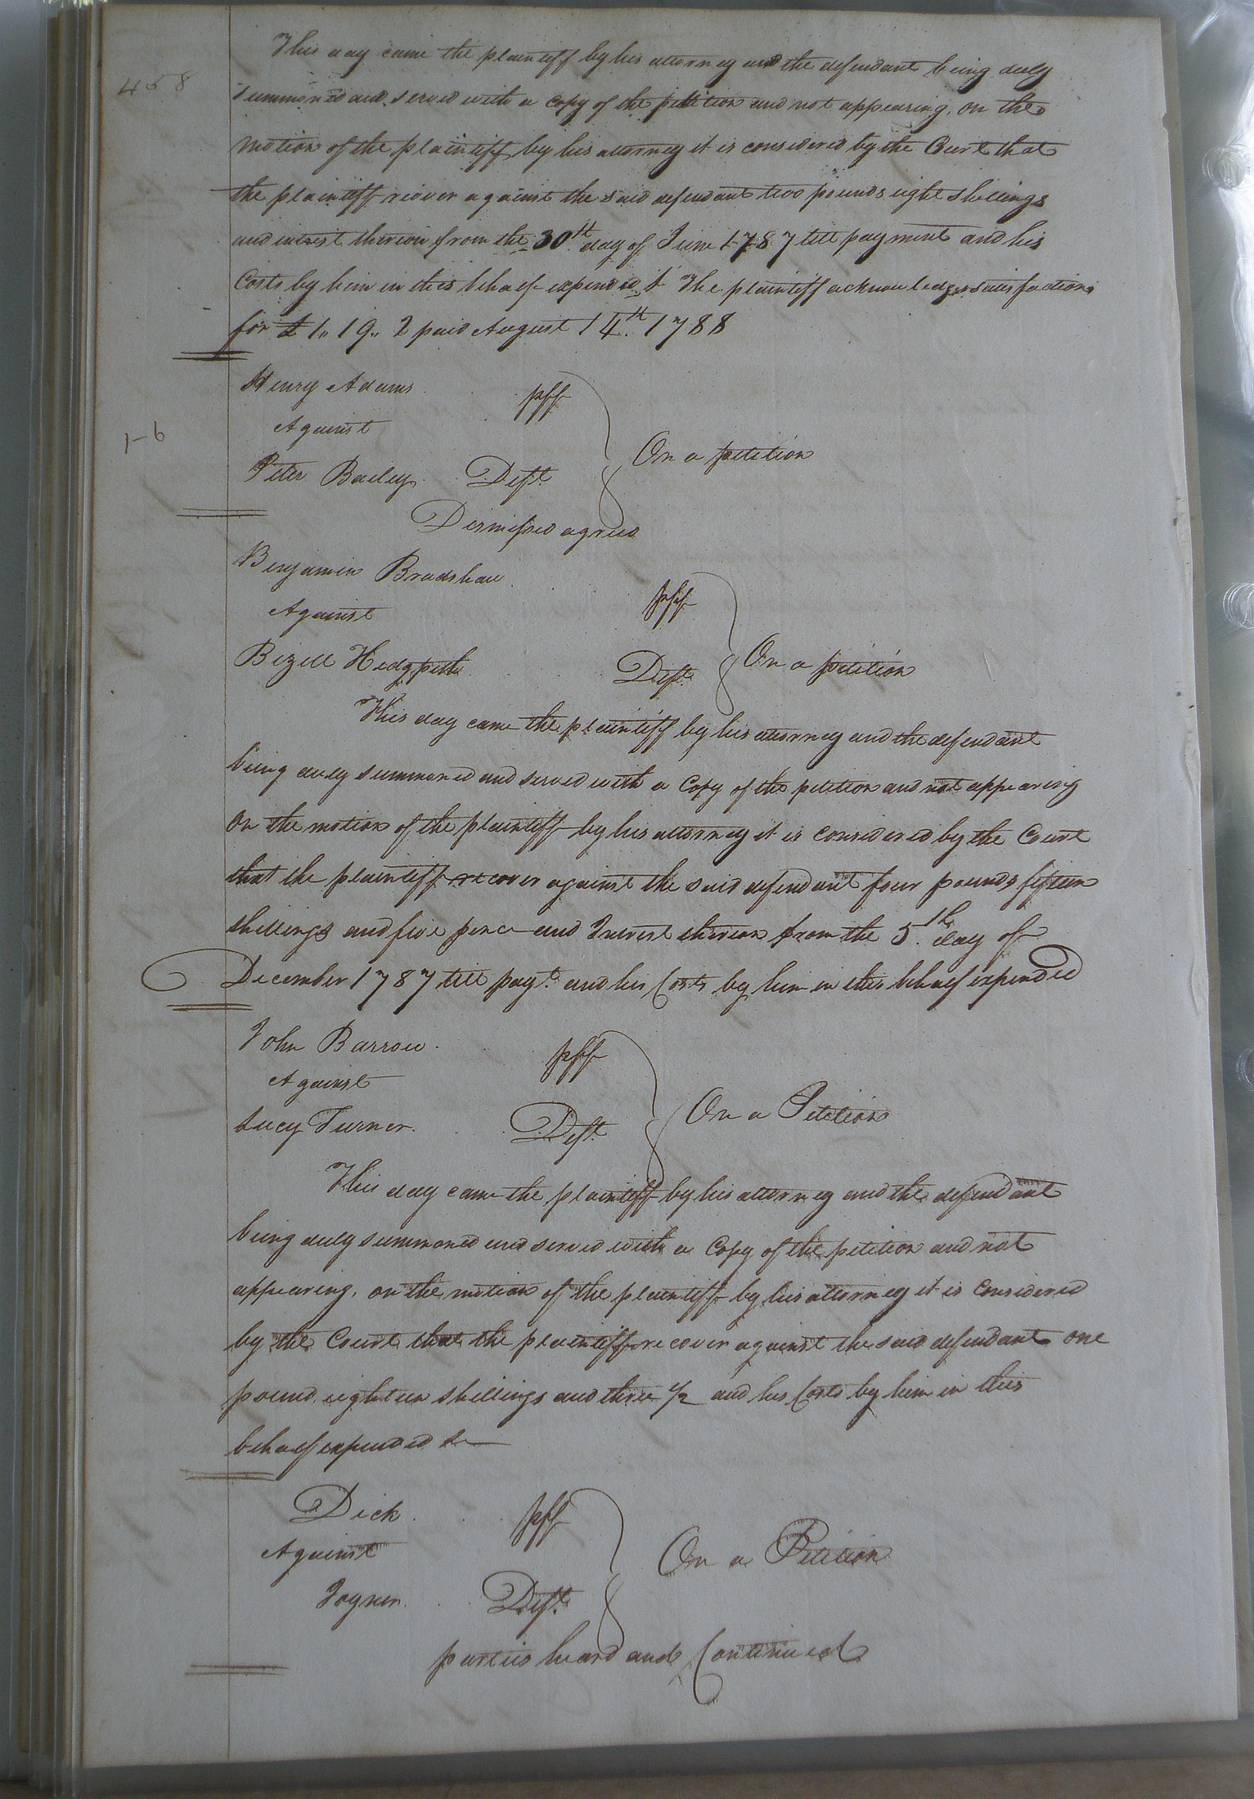 458
This day came the plaintiff by his attorney and the defendant being duly
summoned and served with a copy of the petition and not appearing, on the
motion of the plaintiff by his attorney it is considered by the Court that
the plaintiff recover against the said defendant two pounds eight shillings
and interest thereon from the 30th day of June 1787 till payment and his
Costs by him in this behalf expended & The plaintiff acknowledges satisfaction
for £ 1,, 19,, 2 paid August 14th 1788
Henry Adams pff
Against
On a petition
1-6
Peter Bailey Deft
Dismissed agreed
Benjamin Bradshaw pff
Against
On a petition
Bezell Hedgpeth Deft
This day came the plaintiff by his attorney and the defendant
being duly summoned and served with a Copy of the petition and not appearing
On the motion of the plaintiff by his attorney it is considered by the Court
that the plaintiff recover against the said defendant four pounds fifteen
shillings and five pence and Interest thereon from the 5th day of
December 1787 till payt. and his Costs by him in this behalf expended
John Barrow pff
Against
On a Petition
Lucy Turner Deft
This day came the plaintiff by his attorney and the defendant
being duly summoned and served with a Copy of the petition and not
appearing, on the motion of the plaintiff by his attorney it is Considered
by the Court that the plaintiff recover against the said defendant one
pound eighteen shillings and three 1/2 and his Costs by him in this
behalf expended &c
Dick pff
Against
On a Petition
Joyner Deft
parties heard and Continued